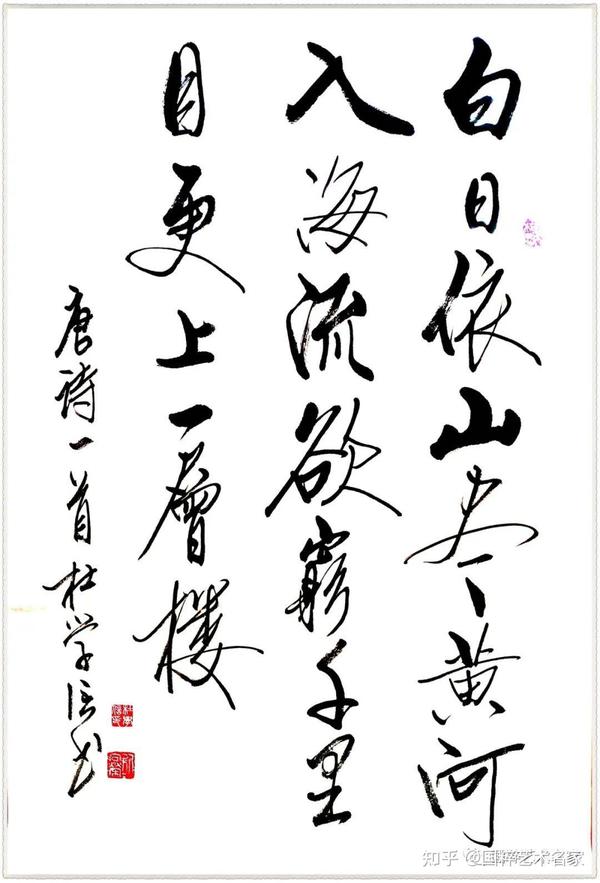 白日依山尽黄河
入海流欲窮千里
目更上一層楼
唐诗一首杜学信书
知乎 @国粹艺术名家